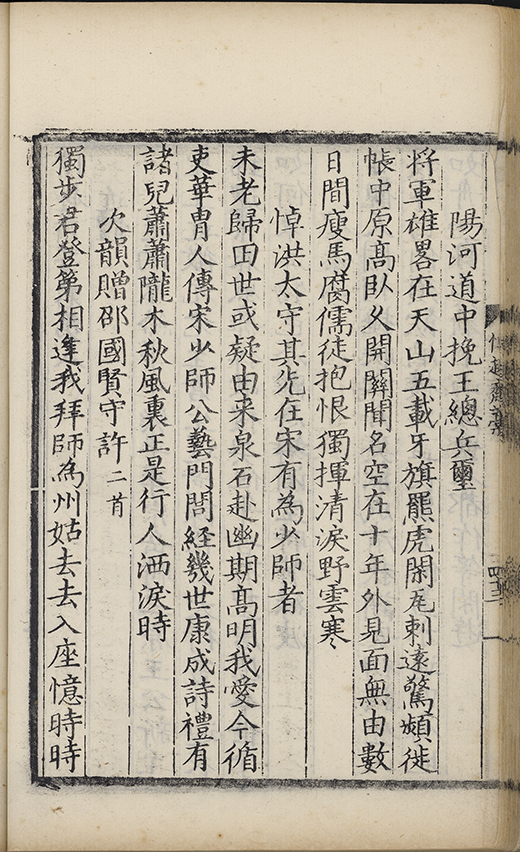 陽河道中挽王總兵璽
將軍雄畧在天山五載牙旗羆虎閑危刺遠驚頻徙
帳中原髙臥乆開關聞名空在十年外見面無由數
日間瘦馬腐儒徒抱恨獨揮清淚野雲寒
悼洪太守其先在宋有為少師者
未老歸田世或疑由来泉石赴幽期髙明我愛今循
吏華胄人傳宋少師公藝門閭経幾世康成詩禮有
諸兒蕭蕭隴木秋風裏正是行人洒淚時
次韻贈邵國賢守許二首
獨步君登第相逢我拜師為州姑去去入座憶時時